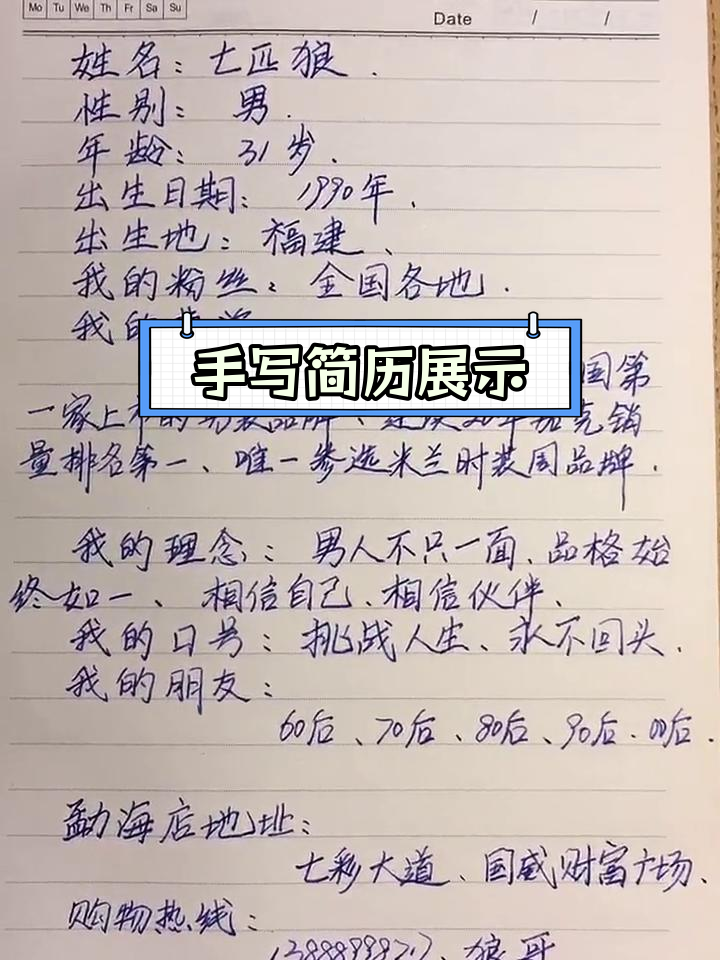 Mo Tu We Th Fr Sa Su
Date / /
姓名：七匹狼.
性别：男.
年龄：31岁.
出生日期：1990年.
出生地：福建、
我的粉丝：全国各地.
我的
手写简历展示
国第
一家上市的男装品牌、连续20年夹克销
量排名第一、唯一参选米兰时装周品牌.
我的理念：男人不只一面、品格始
终如一、相信自己、相信伙伴、
我的口号：挑战人生、永不回头.
我的朋友：
60后、70后、80后、90后.00后.
勐海店地址：
七彩大道、国威财富广场、
购物热线：
狼哥